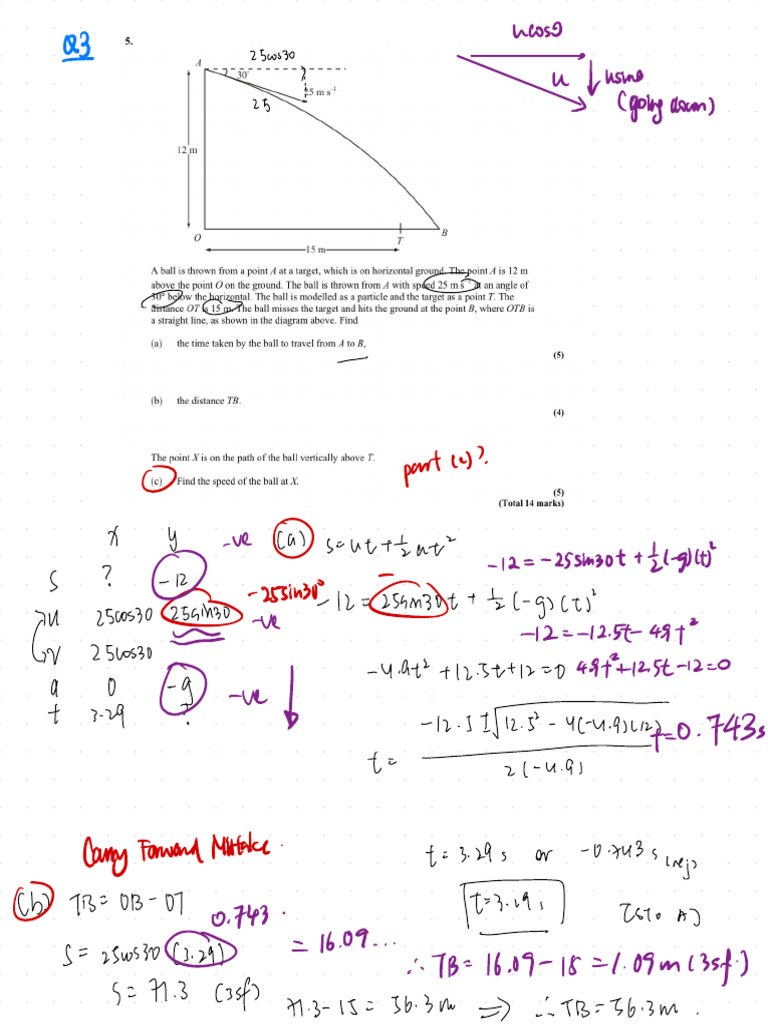 Q3
5.
ucosθ
u
usinθ
(going down)
25cos30
A
30°
25 m s⁻¹
25
12 m
O
T
B
15 m
A ball is thrown from a point A at a target, which is on horizontal ground. The point A is 12 m
above the point O on the ground. The ball is thrown from A with speed 25 m s⁻¹ at an angle of
30° below the horizontal. The ball is modelled as a particle and the target as a point T. The
distance OT is 15 m. The ball misses the target and hits the ground at the point B, where OTB is
a straight line, as shown in the diagram above. Find
(a) the time taken by the ball to travel from A to B,
(5)
(b) the distance TB.
(4)
The point X is on the path of the ball vertically above T.
part (c)?
(c) Find the speed of the ball at X.
(5)
(Total 14 marks)
x y
-ve
s ? -12
u 25cos30 25sin30
-25sin30°
-ve
v 25cos30
a 0 -g
-ve
t 3.29 ?
(a) s=ut+½at²
-12 = -25sin30t + ½(-g)(t)²
-
-12 = 25sin30t + ½(-g)(t)²
-12 = -12.5t - 4.9t²
-4.9t² + 12.5t + 12 = 0
4.9t² + 12.5t - 12 = 0
t = -12.5 ± √12.5² - 4(-4.9)(12) / 2(-4.9)
t=0.743s
Carry Forward Mistake.
t = 3.29 s or -0.743 s (rej)
t=3.29s
(b) TB = OB - OT
0.743
S = 25cos30 (3.29)
= 16.09...
∴ TB = 16.09 - 15 = 1.09m (3sf.)
S = 71.3 (3sf)
71.3 - 15 = 56.3 m ⇒ ∴ TB = 56.3 m.